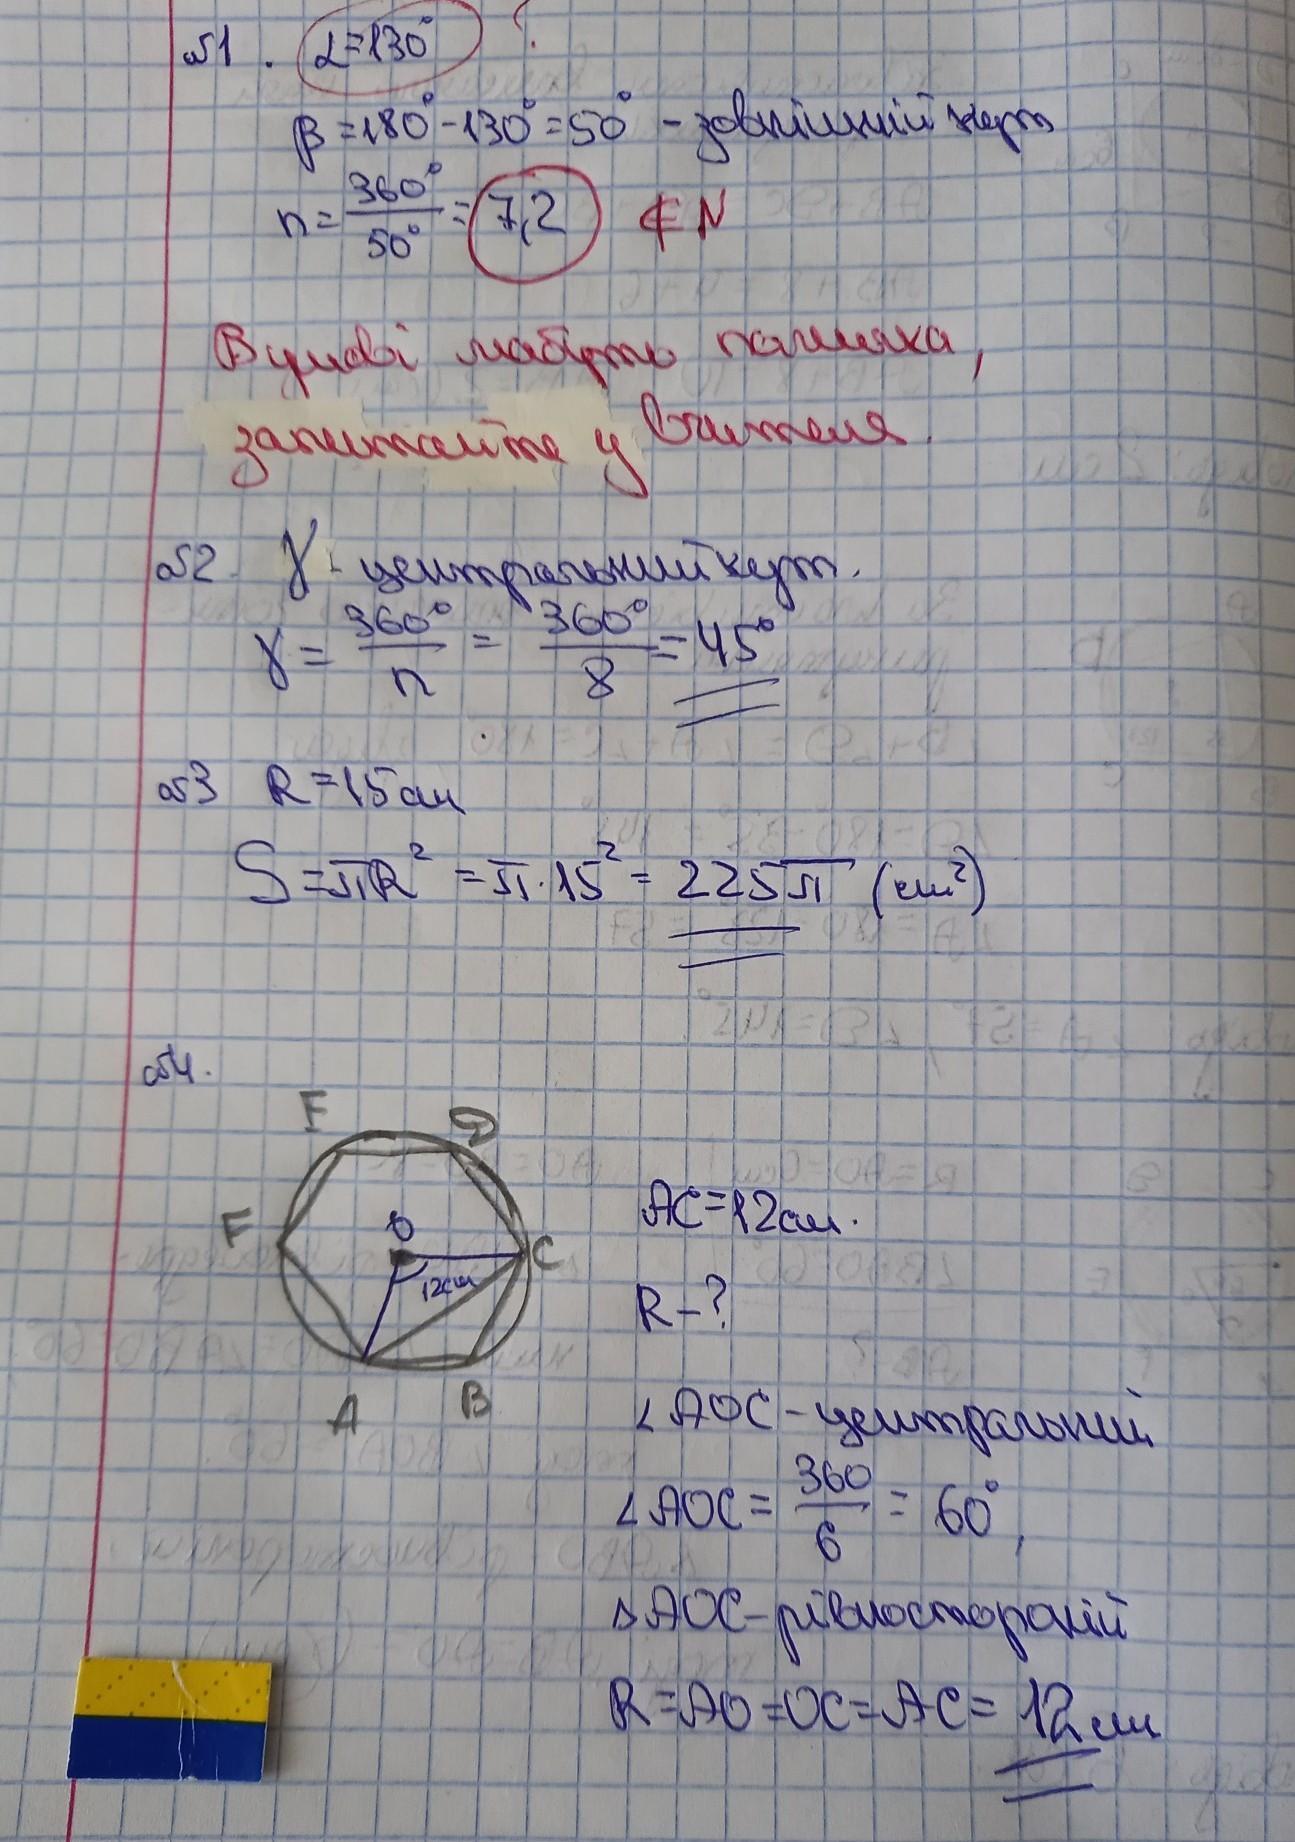 №1. α=130° ?
β=180°-130°=50° - зовнішній кут
n=360°/50°=7,2 ∉ N
В умові мабуть помилка,
запитайте у вчителя.
№2. γ - центральний кут.
γ=360°/n=360°/8=45°
№3 R=15см
S=πR²=π·15²=225π (см²)
№4.
F D
F O C
12см
A B
AC=12см.
R-?
∠AOC-центральний
∠AOC=360/6=60°,
△AOC-рівносторонній
R=AO=OC=AC=12см